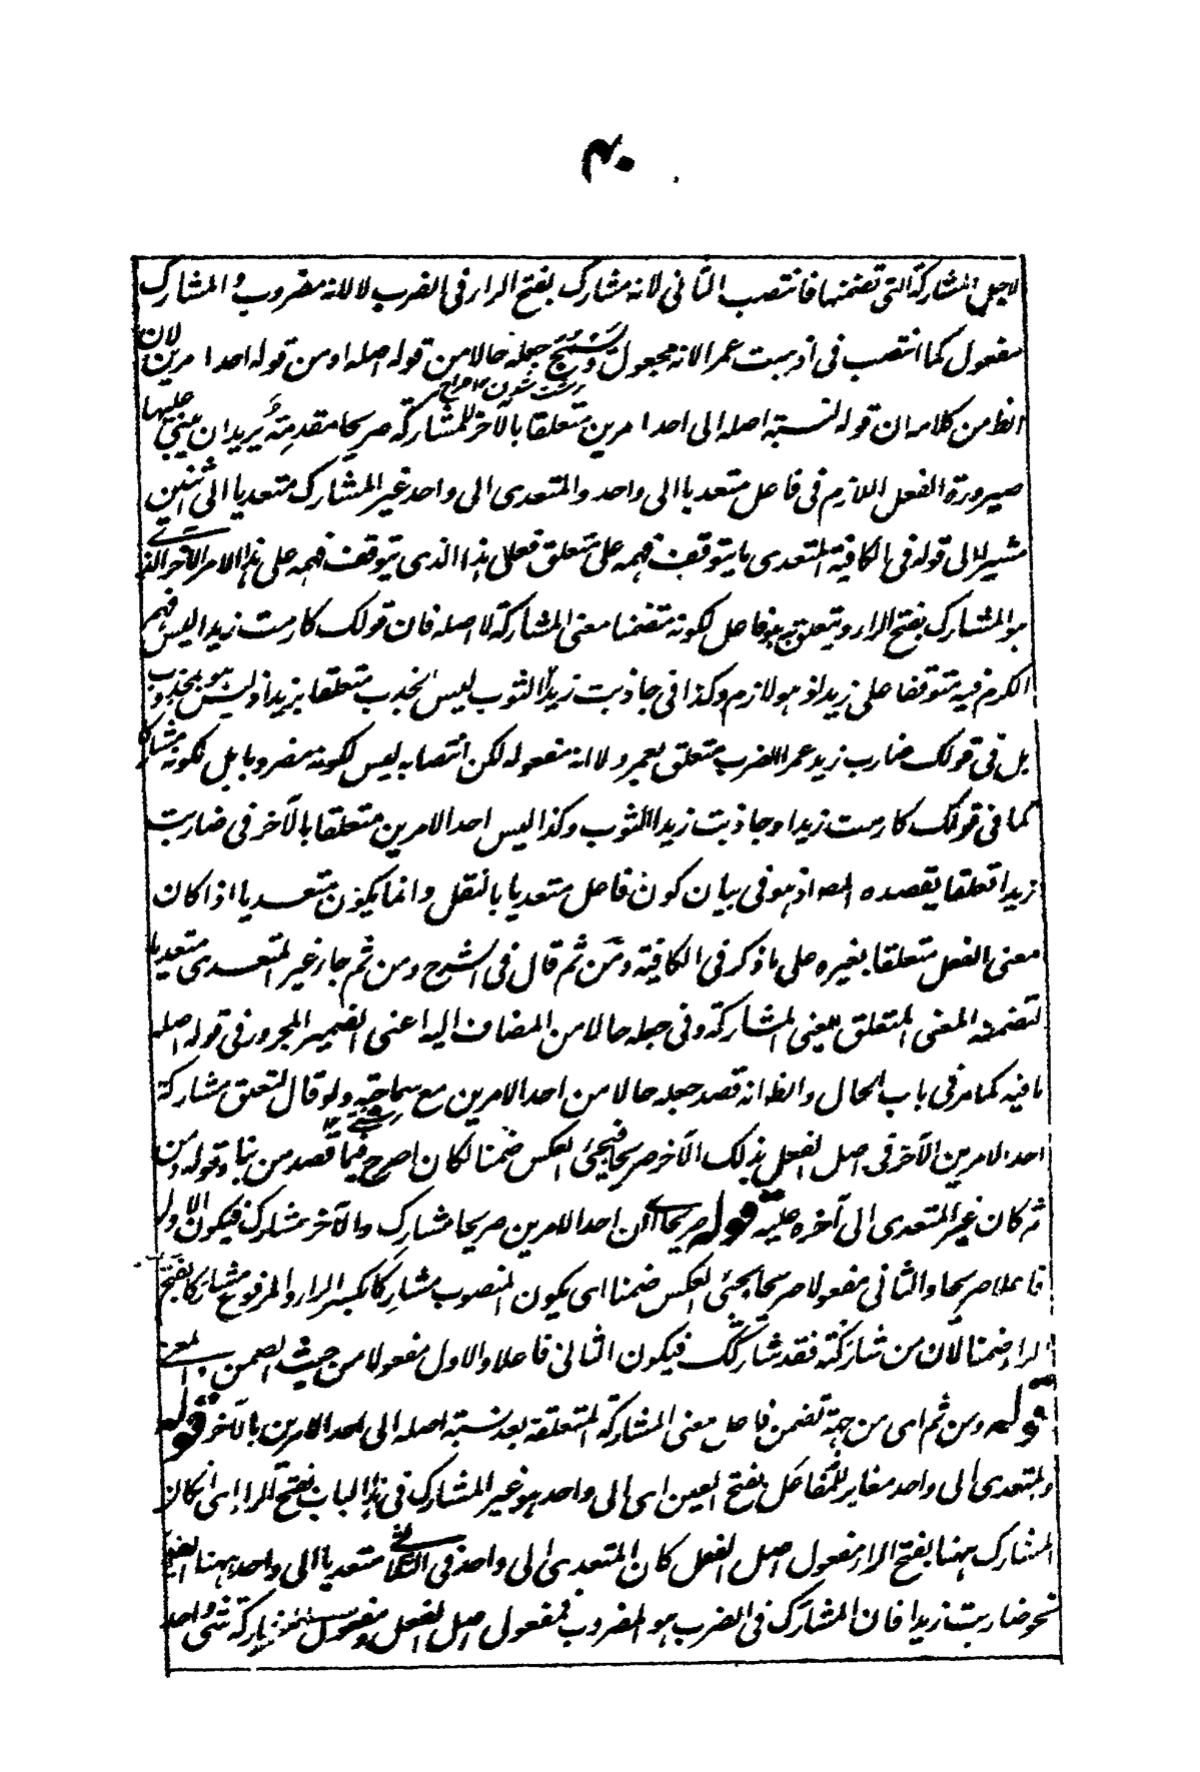 ۴۰
لاجل المشاركة التى تضمنها فانتصب الثانى لانه مشارك بفتح الراء فى الضرب لا لانه مضروب والمشارك
مفعول كما انتصب فى اذهبت عمرا لانه مجعول وسمج جعله حالا من قوله اصله او من قوله احد الامرين لان
زشت شدن ١٢ صراح
الظ من كلامه ان قوله لنسبة اصله الى احد الامرين متعلقا بالآخر للمشاركة صريحا مقدمة يريد ان يبنى عليها
صيرورة الفعل اللازم فى فاعل متعديا الى واحد والمتعدى الى واحد غير المشارك متعديا الى اثنين
مشيرا الى قوله فى الكافية المتعدى ما يتوقف فهمه على متعلق فعلى هذا الذى يتوقف فهمه على هذا الامر الآخر الذى
هو المشارك بفتح الراء ويتعلق به هو فاعل لكونه متضمنا معنى المشاركة لا اصله فان قولك كارمت زيدا ليس فهم
الكرم فيه متوقفا على زيد اذ هو لازم وكذا فى جاذبت زيدا الثوب ليس الجذب متعلقا بزيد اذ ليس هو بمجذوب
بل فى قولك ضارب زيد عمرا الضرب متعلق بعمرو لا انه مفعوله لكن انتصابه ليس لكونه مضروبا بل لكونه مشاركا
كما فى قولك كارمت زيدا وجاذبت زيدا الثوب وكذا ليس احد الامرين متعلقا بالآخر فى ضاربت
زيدا تعلقا يقصده المصـ اذ هو فى بيان كون فاعل متعديا بالنقل وانما يكون متعديا اذا كان
معنى الفعل متعلقا بغيره على ما ذكر فى الكافية ومن ثم قال فى الشرح ومن ثم جاء غير المتعدى متعديا
لتضمنه المعنى المتعلق يعنى المشاركة وفى جعله حالا من المضاف اليه اعنى الضمير المجرور فى قوله اصله
ما فيه كما مر فى باب الحال والظ انه قصد جعله حالا من احد الامرين مع سماجته ولو قال لتعلق مشاركة
احد الامرين الآخر فى اصل الفعل بذلك الآخر صريحا فيجئ العكس ضمنا لكان اصرح فيما قصد من بناء قوله ومن
ثم كان غير المتعدى الى آخره عليه قوله صريحا اى ان احد الامرين صريحا مشارك والآخر مشارك فيكون الاول
فاعلا صريحا والثانى مفعولا صريحا يجئ العكس ضمنا اى يكون المنصوب مشاركا بكسر الراء والمرفوع مشاركا بفتح
الراء ضمنا لان من شاركته فقد شاركك فيكون الثانى فاعلا والاول مفعولا من حيث الضمن والمعنى
قوله ومن ثم اى من جهة تضمن فاعل معنى المشاركة المتعلقة بعد نسبة اصله الى احد الامرين بالآخر قوله
والمتعدى الى واحد مغاير للمفاعل بفتح العين اى الى واحد هو غير المشارك فى هذا الباب بفتح الراء اى ان كان
المشارك ههنا بفتح الراء مفعول اصل الفعل كان المتعدى الى واحد فى الثلاثى متعديا الى واحد ههنا ايضا
نحو ضاربت زيدا فان المشارك فى الضرب هو المضروب فمفعول اصل الفعل ومفعول المشاركة شئ واحد